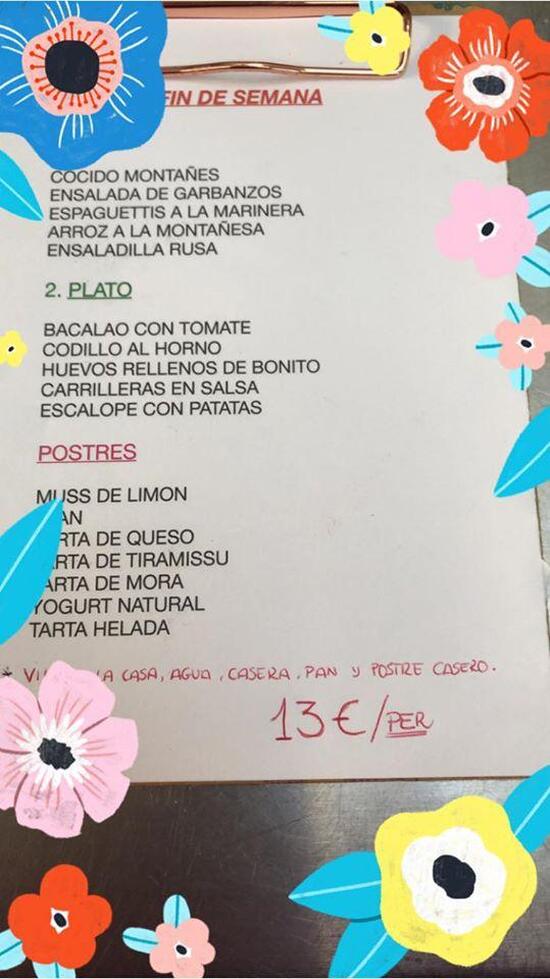 FIN DE SEMANA
COCIDO MONTAÑES
ENSALADA DE GARBANZOS
ESPAGUETTIS A LA MARINERA
ARROZ A LA MONTAÑESA
ENSALADILLA RUSA
2. PLATO
BACALAO CON TOMATE
CODILLO AL HORNO
HUEVOS RELLENOS DE BONITO
CARRILLERAS EN SALSA
ESCALOPE CON PATATAS
POSTRES
MUSS DE LIMON
TARTA DE QUESO
TARTA DE TIRAMISSU
TARTA DE MORA
YOGURT NATURAL
TARTA HELADA
LA CASA, AGUA, CASERA, PAN Y POSTRE CASERO.
13€/PER